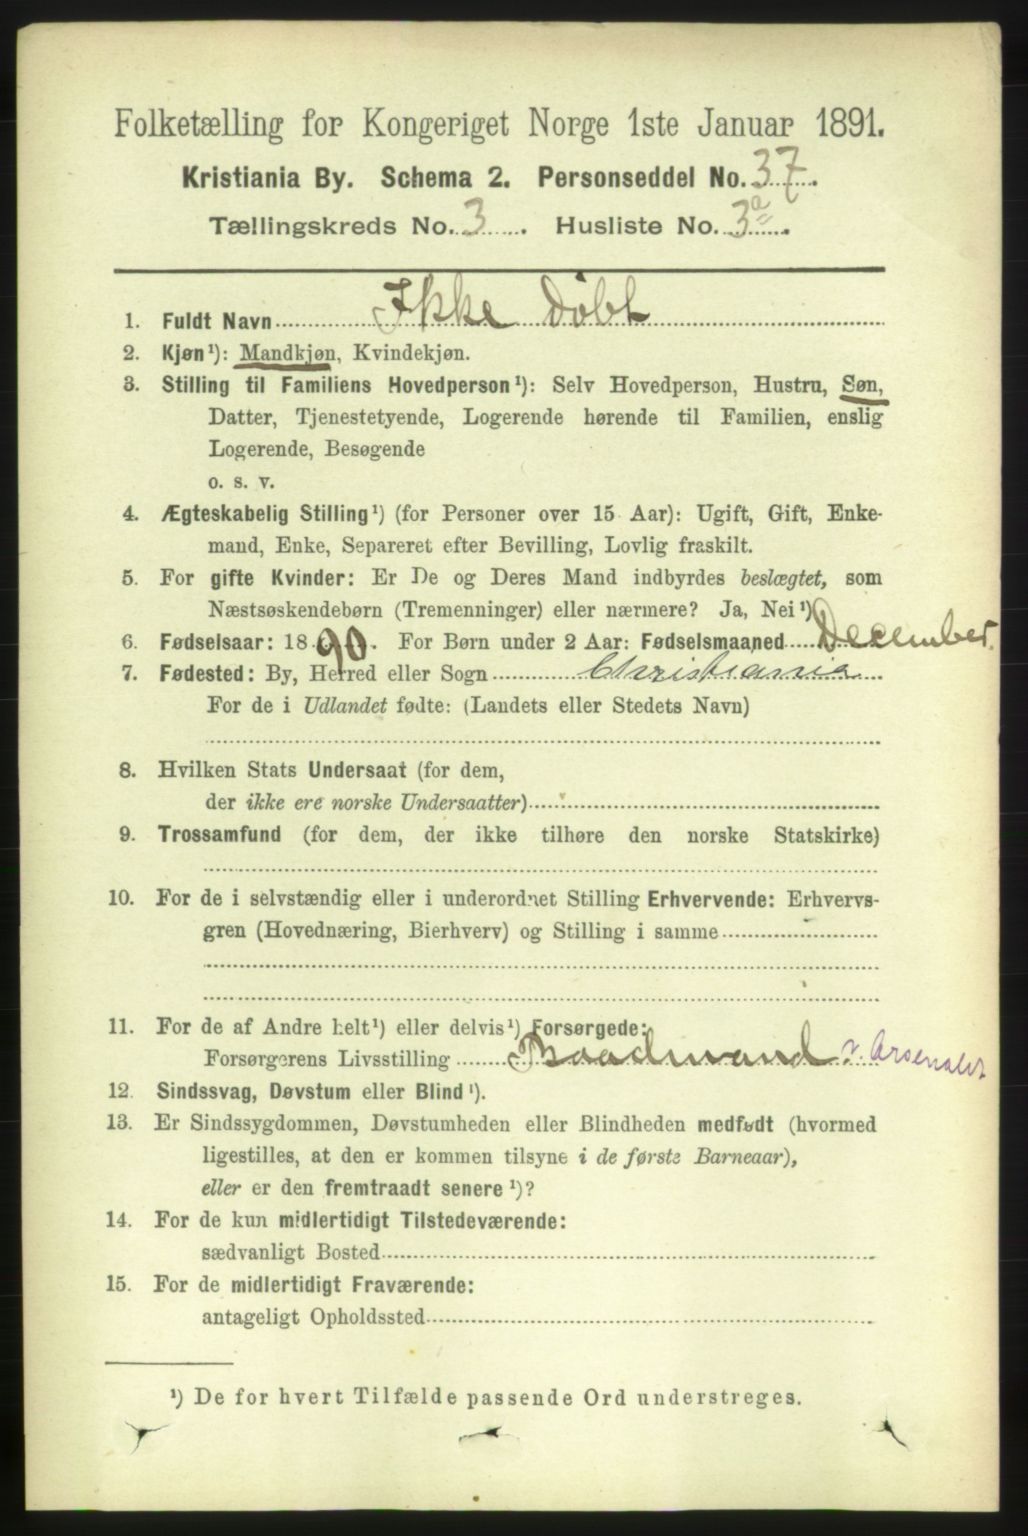 Folketælling for Kongeriget Norge 1ste Januar 1891.
Kristiania By. Schema 2. Personseddel No. 37.
Tællingskreds No. 3. Husliste No. 3a.
1. Fuldt Navn Ikke døbt
2. Kjøn¹): Mandkjøn, Kvindekjøn.
3. Stilling til Familiens Hovedperson¹): Selv Hovedperson, Hustru, Søn,
Datter, Tjenestetyende, Logerende hørende til Familien, enslig
Logerende, Besøgende
o. s. v.
4. Ægteskabelig Stilling¹) (for Personer over 15 Aar): Ugift, Gift, Enke-
mand, Enke, Separeret efter Bevilling, Lovlig fraskilt.
5. For gifte Kvinder: Er De og Deres Mand indbyrdes beslægtet, som
Næstsøskendebørn (Tremenninger) eller nærmere? Ja, Nei¹)
6. Fødselsaar: 1890. For Børn under 2 Aar: Fødselsmaaned December.
7. Fødested: By, Herred eller Sogn Christiania
For de i Udlandet fødte: (Landets eller Stedets Navn)
8. Hvilken Stats Undersaat (for dem,
der ikke ere norske Undersaatter)
9. Trossamfund (for dem, der ikke tilhøre den norske Statskirke)
10. For de i selvstændig eller i underordnet Stilling Erhvervende: Erhvervs-
gren (Hovednæring, Bierhverv) og Stilling i samme
11. For de af Andre helt¹) eller delvis¹) Forsørgede:
Forsørgerens Livsstilling Baadmand v. Arsenalet
12. Sindssvag, Døvstum eller Blind¹).
13. Er Sindssygdommen, Døvstumheden eller Blindheden medfødt (hvormed
ligestilles, at den er kommen tilsyne i de første Barneaar),
eller er den fremtraadt senere¹)?
14. For de kun midlertidigt Tilstedeværende:
sædvanligt Bosted
15. For de midlertidigt Fraværende:
antageligt Opholdssted
¹) De for hvert Tilfælde passende Ord understreges.